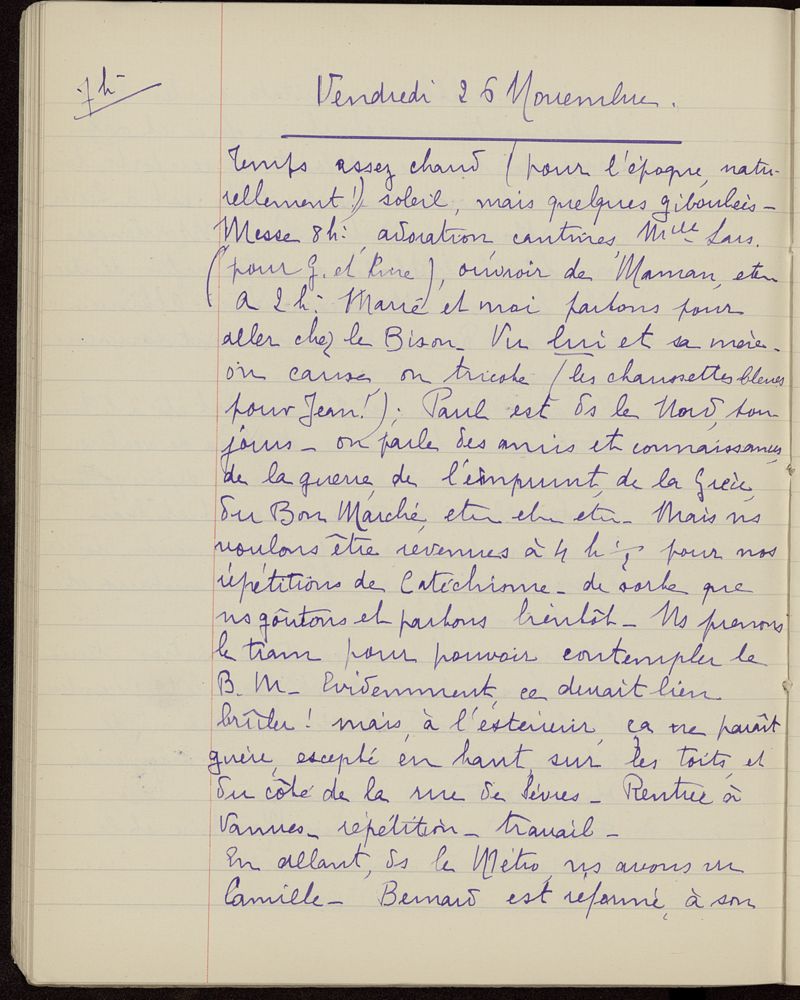 7h-
Vendredi 26 Novembre.
Temps assez chaud (pour l'époque, natu-
rellement!) soleil, mais quelques giboulées -
Messe 8h: adoration, cantines, Mlle
(pour G. et ), ouvroir de Maman, etc
A 2h: Marie et moi partons pour
aller chez le Bison - Vu lui et sa mère -
on cause, on tricote (les chaussettes bleues
pour Jean!); Paul est ds le Nord, tou-
jours - on parle des amis et connaissances,
de la guerre, de l'emprunt, de la Grèce,
du Bon Marché, etc etc etc - Mais ns
voulons être revenues à 4 h ½ pour nos
répétitions de Catéchisme - de sorte que
ns goûtons et partons bientôt - Ns prenons
le tram pour pouvoir contempler le
B. M - Evidemment, ce devait bien
brûler! mais, à l'extérieur, ça ne paraît
guère, excepté en haut, sur les toits, et
du côté de la rue de Sèvres - Rentrée à
Vannes - répétition - travail -
En allant, ds le Métro, ns avons vu
Camille - Bernard est réformé, à son